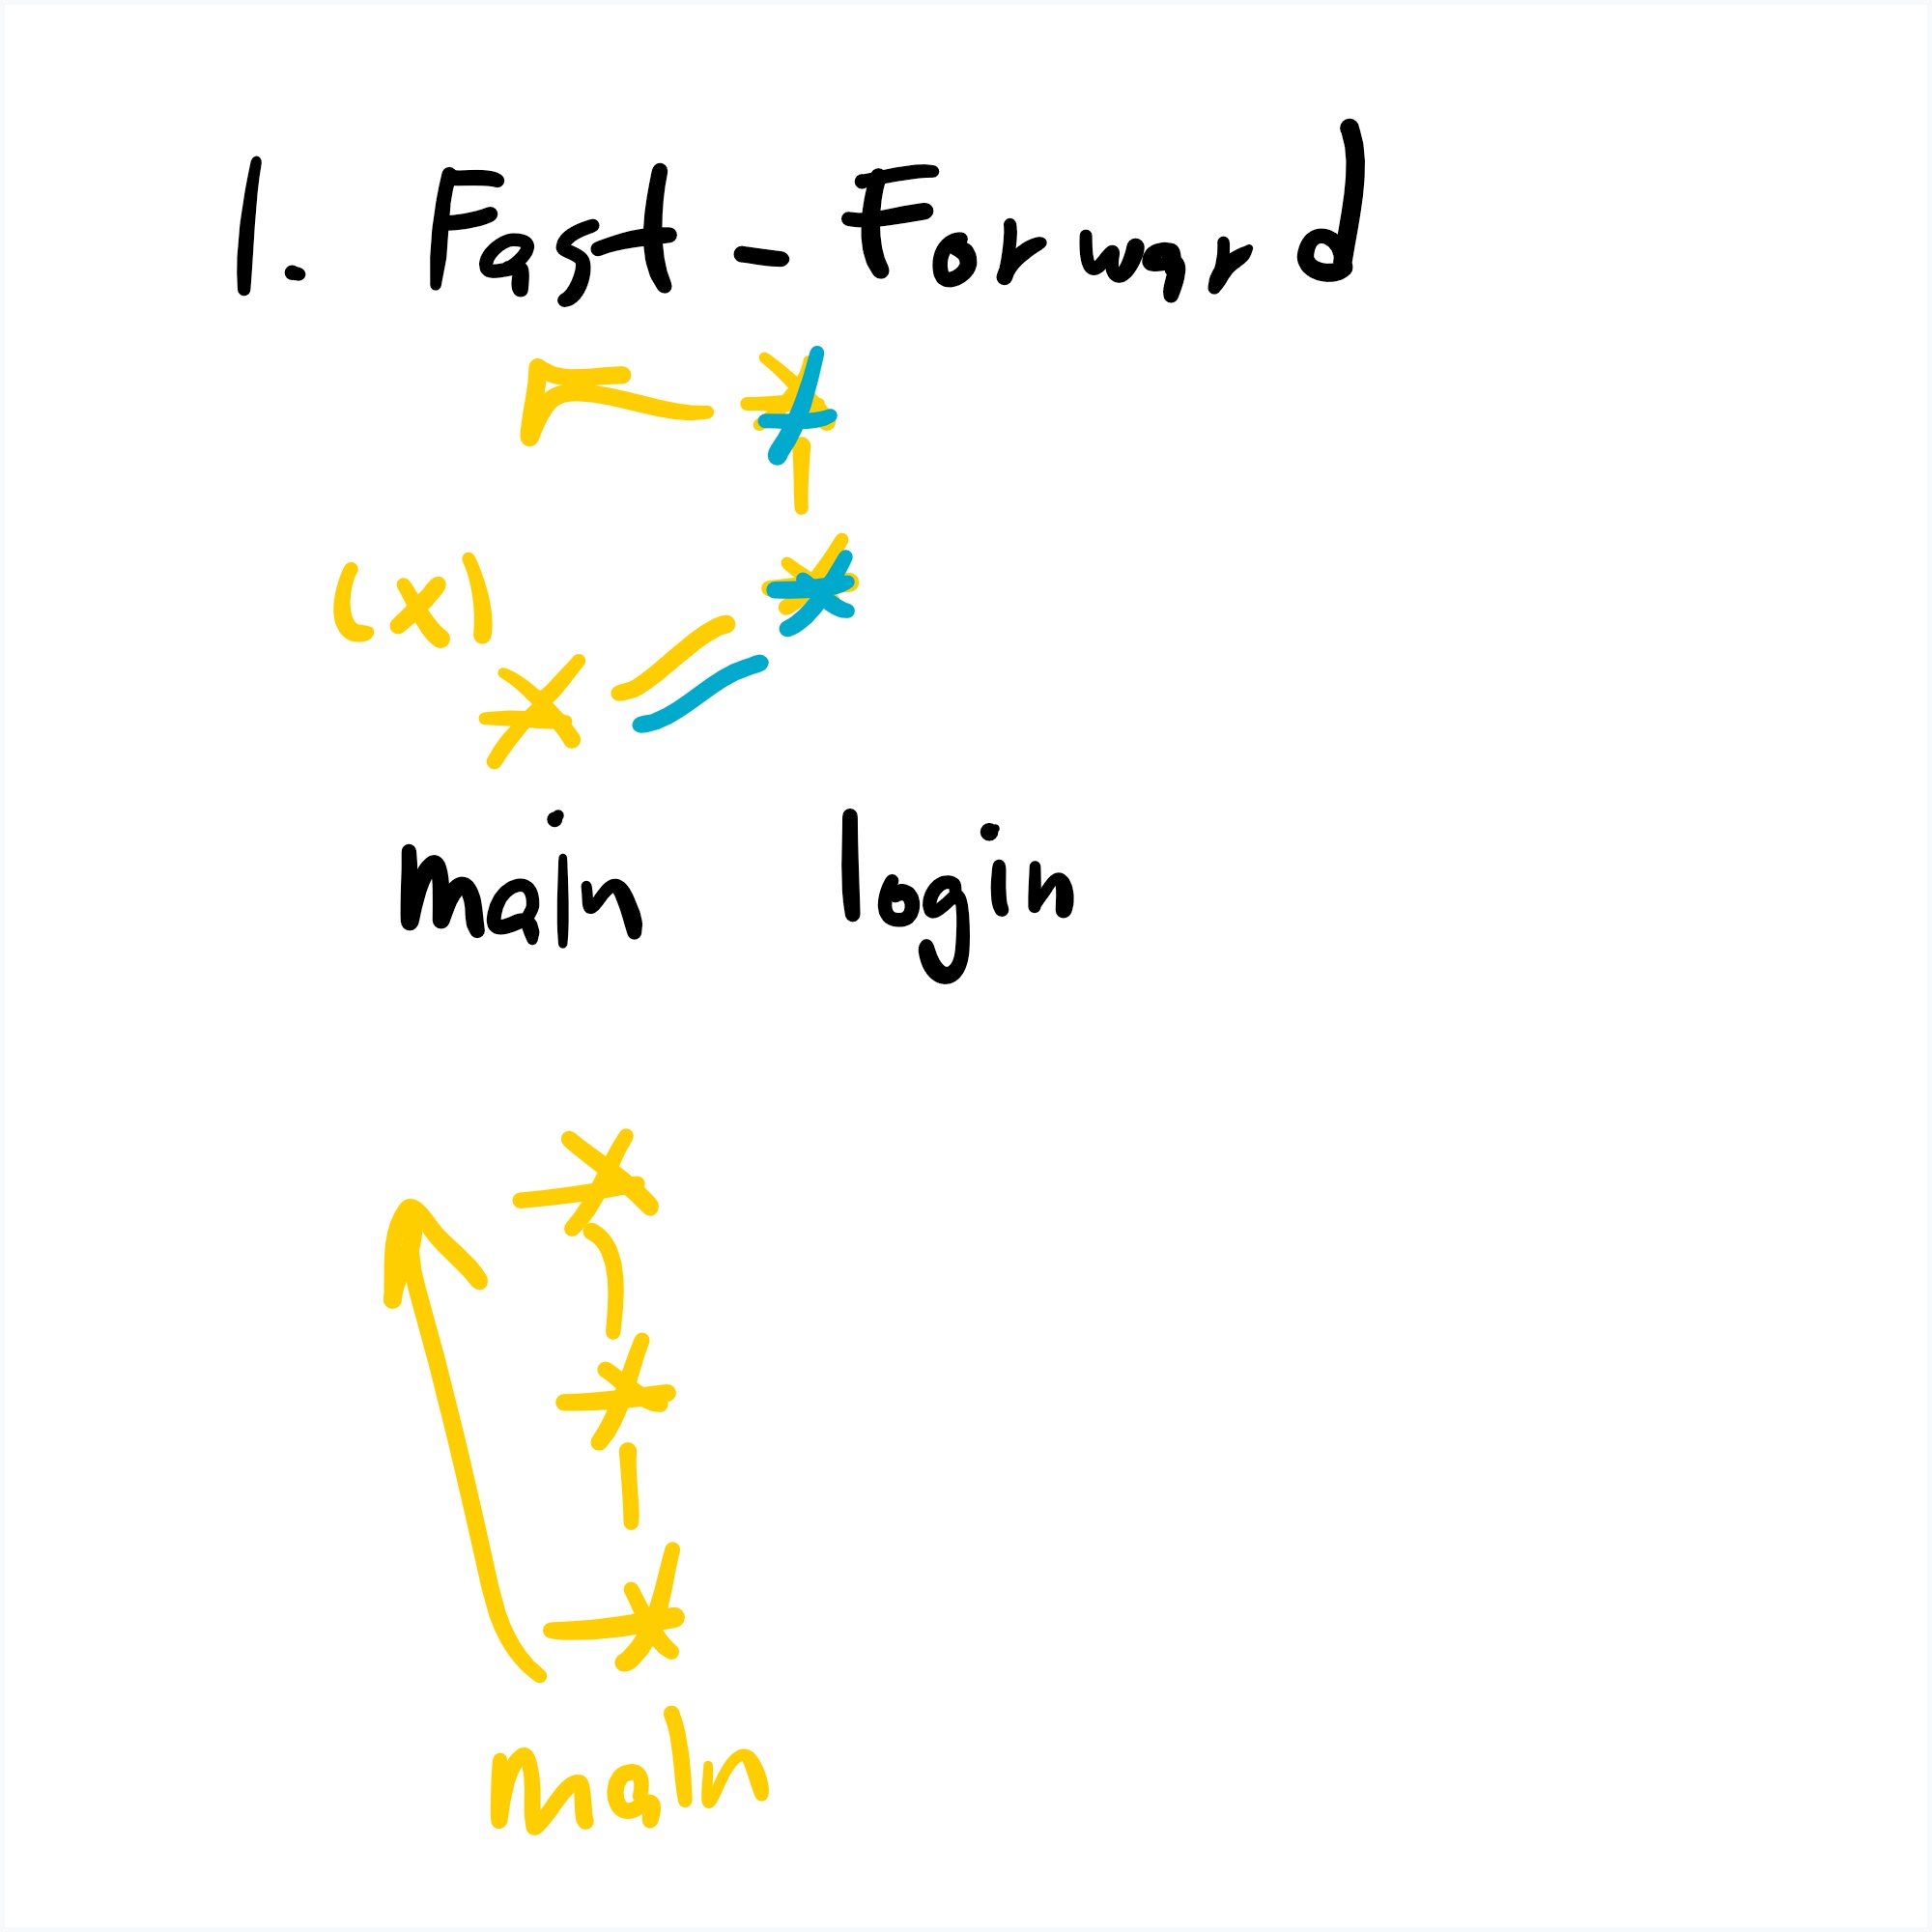 1. Fast-Forward
(x)
main login
main